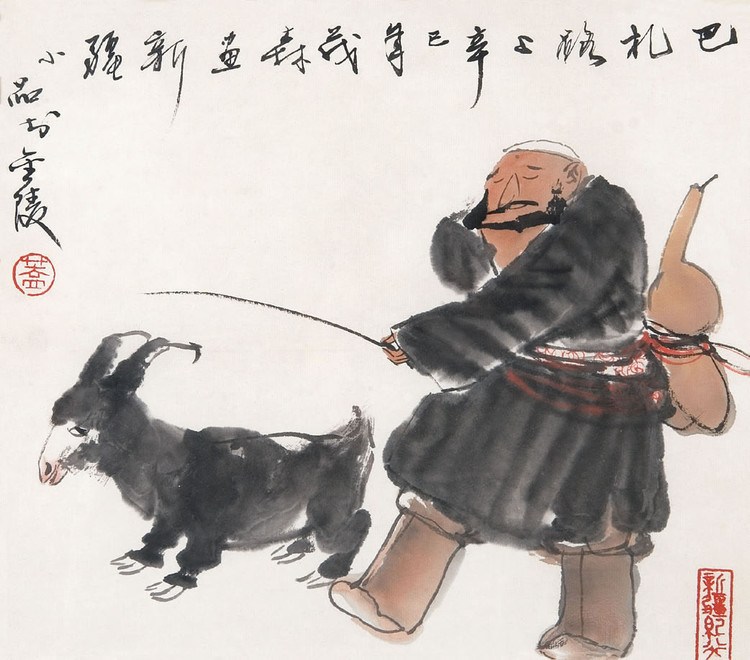 巴札路上辛巳年茂森画新疆
小品于金陵
新疆紀行